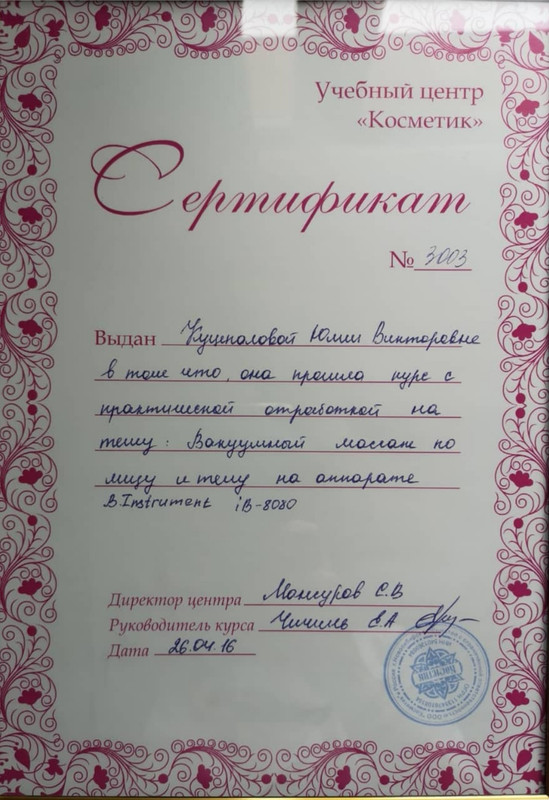 Учебный центр
«Косметик»
Сертификат
№ 3003
Выдан Юлии Викторовне
в том что, она прошла курс с
практической отработкой на
тему: Вакуумный массаж по
лицу и телу на аппарате
B.Instrument iB-8080
Директор центра Мансуров С.В
Руководитель курса Е.А
Дата 26.04.16